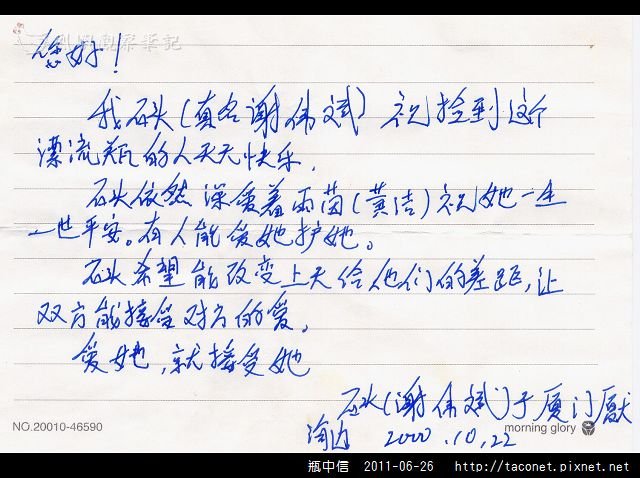 您好!
我石头(真名谢伟斌)祝捡到这个
漂流瓶的人天天快乐.
石头依然深爱着雨茵(黄洁)祝她一生
一世平安。有人能爱她护她。
石头希望能改变上天给他们的差距,让
双方能接受对方的爱。
爱她,就接受她
石头(谢伟斌)于厦门
海边 2000.10.22
NO.20010-46590
morning glory
瓶中信 2011-06-26 http://taconet.pixnet.net